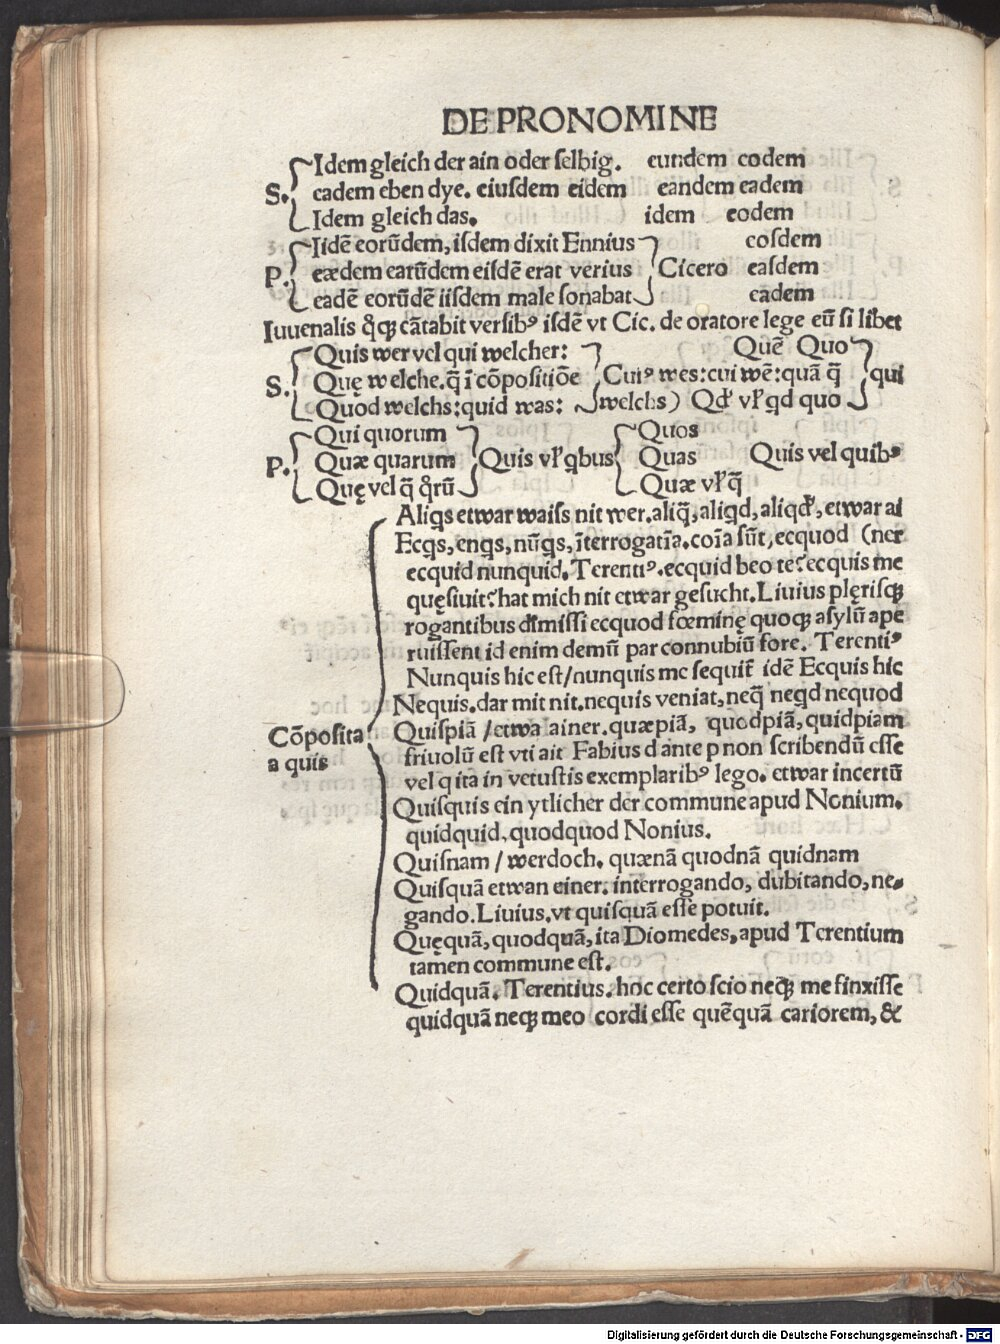 DE PRONOMINE
Idem gleich der ain oder selbig. eundem eodem
S. eadem eben dye. eiusdem eidem eandem eadem
Idem gleich das. idem eodem
Iidē eorūdem, isdem dixit Ennius eosdem
P. eædem earūdem eisdē erat verius Cicero easdem
eadē eorūdē iisdem male sonabat eadem
Iuuenalis q̊cꝗ cātabit versibꝰ isdē vt Cic. de oratore lege eū si libet
Quis wer vel qui welcher: Quē Quo
S. Quę welche. q̄ ī cōpositiōe Cuiꝰ wes: cui wē: quā q̄ qui
Quod welchs: quid was: welchs) Qđ vł qd quo
Qui quorum Quos
P. Quæ quarum Quis vł qbus Quas Quis vel quibꝰ
Quę vel q̄ q̊rū Quæ vł q̄
Aliqs etwar waiss nit wer. aliq̄, aliqd, aliqđ, etwar ai
Ecqs, enqs, nūqs, īterrogatīa. coīa sūt, ecquod (ner
ecquid nunquid. Terentiꝰ. ecquid beo te? ecquis me
quęsiuit? hat mich nit etwar gesucht. Liuius plęrisqꝫ
rogantibus dimissi ecquod fœminę quoqꝫ asylū ape
ruissent id enim demū par connubiū fore. Terentiꝰ
Nunquis hic est/nunquis me sequit̄ idē Ecquis hic
Nequis. dar mit nit. nequis veniat, neq̄ neqd nequod
Cōposita
a quis
Quispiā / etwa ainer. quæpiā, quodpiā, quidpiam
friuolū est vti ait Fabius d ante p non scribendū esse
vel q ita in vetustis exemplaribꝰ lego. etwar incertū
Quisquis ein ytlicher der commune apud Nonium.
quidquid, quodquod Nonius.
Quisnam / werdoch. quænā quodnā quidnam
Quisquā etwan einer. interrogando, dubitando, ne-
gando. Liuius. vt quisquā esse potuit.
Quęquā, quodquā, ita Diomedes, apud Terentium
tamen commune est.
Quidquā. Terentius. hoc certo scio neqꝫ me finxisse
quidquā neqꝫ meo cordi esse quēquā cariorem, &
Digitalisierung gefördert durch die Deutsche Forschungsgemeinschaft - DFG